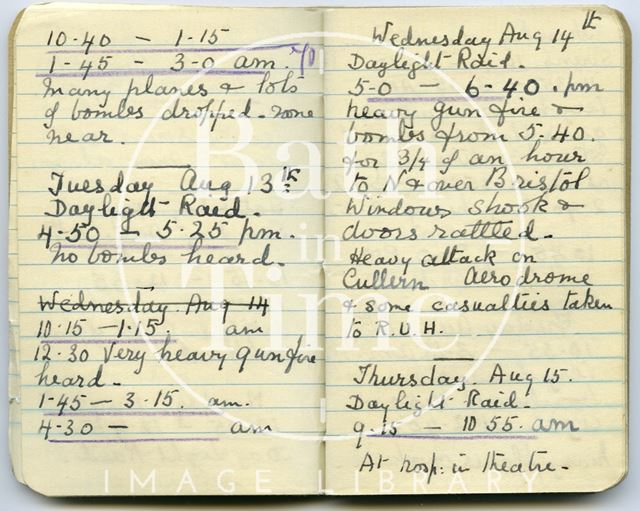 10.40 – 1.15
1-45 – 3-0 am.
Many planes & lots
of bombes dropped - none
near.
Tuesday Aug 13th
Daylight Raid.
4-50 – 5.25 pm.
No bombes heard.
Wednesday Aug 14
10.15 – 1.15. am
12.30 Very heavy gunfire
heard.
1-45 – 3.15. am.
4-30 – am
Wednesday Aug 14th
Daylight Raid.
5-0 – 6-40. pm
heavy gun fire &
bombes from 5-40.
for 3/4 of an hour
to N & over Bristol
Windows shook &
doors rattled.
Heavy attack on
Cullern Aerodrome
& some casualties taken
to R.U.H.
Thursday. Aug 15.
Daylight Raid.
9.15 – 10 55. am
At hosp: in theatre.
Bath
in
Time
IMAGE LIBRARY